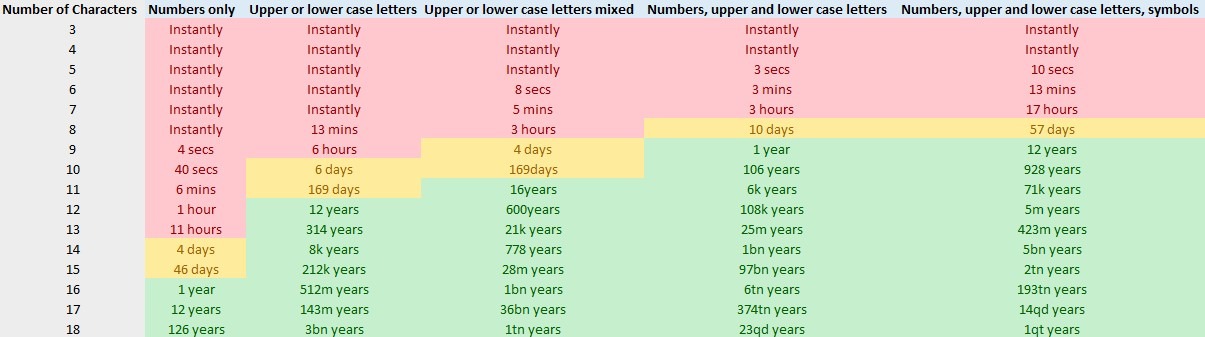 Number of Characters Numbers only Upper or lower case letters Upper or lower case letters mixed Numbers, upper and lower case letters Numbers, upper and lower case letters, symbols
3 Instantly Instantly Instantly Instantly Instantly
4 Instantly Instantly Instantly Instantly Instantly
5 Instantly Instantly Instantly 3 secs 10 secs
6 Instantly Instantly 8 secs 3 mins 13 mins
7 Instantly Instantly 5 mins 3 hours 17 hours
8 Instantly 13 mins 3 hours 10 days 57 days
9 4 secs 6 hours 4 days 1 year 12 years
10 40 secs 6 days 169days 106 years 928 years
11 6 mins 169 days 16years 6k years 71k years
12 1 hour 12 years 600years 108k years 5m years
13 11 hours 314 years 21k years 25m years 423m years
14 4 days 8k years 778 years 1bn years 5bn years
15 46 days 212k years 28m years 97bn years 2tn years
16 1 year 512m years 1bn years 6tn years 193tn years
17 12 years 143m years 36bn years 374tn years 14qd years
18 126 years 3bn years 1tn years 23qd years 1qt years